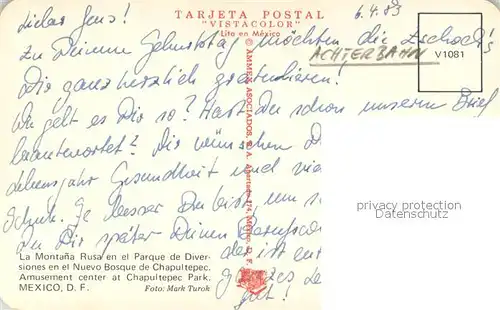 Liebes Jens!
6.4.83
TARJETA POSTAL
"VISTACOLOR"
Lito en México
Zu Deinem Geburtstag möchten die Zschoch's
ACHTERBAHN
V1081
Dir ganz herzlich gratulieren.
Wie geht es Dir so? Hast Du schon unseren Brief
beantwortet? Wir wünschen D
Lebensjahr Gesundheit und vie
Schule. Je besser Du bist, um s
Du Dir später Deinen Berufsw
der ist ent
ganzes Le
gut!
AMMEX ASOCIADOS, S. A. Apartado 174, México, D. F.
La Montaña Rusa en el Parque de Diver-
siones en el Nuevo Bosque de Chapultepec.
Amusement center at Chapultepec Park.
MEXICO, D. F. Foto: Mark Turok
privacy protection